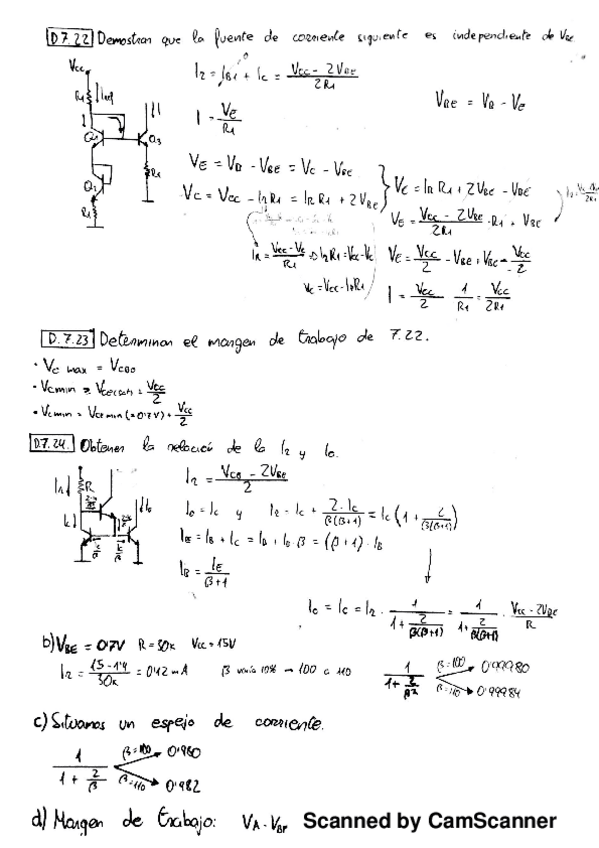 D7.22 Demostrar que la fuente de corriente siguiente es independiente de VBE
Vcc
R1 Iref
I2 = IB1 + Ic = (Vcc - 2VBE)/(2R1)
VBE = VB - VE
I = VE/R1
Q3
R1
VE = VB - VBE = VC - VBE
VC = Vcc - I2R1 = IRR1 + 2VBE
VE = IRR1 + 2VBE - VBE
VE = (Vcc - 2VBE)/(2R1) · R1 + VBE
IR = (Vcc - Vc)/R1 ⇒ I2R1 = Vcc - Vc
VE = Vcc/2 - VBE + VBE = Vcc/2
Vc = Vcc - I2R1
I = Vcc/2 1/R1 = Vcc/2R1
D.7.23 Determinar el margen de trabajo de 7.22.
· Vc max = VCBO
· Vcmin = VCE(sat) + Vcc/2
· Vcmin = VCE min (=0'2V) + Vcc/2
D.7.24. Obtener la relació de la I2 y Io.
R
Io
I2 = (Vcc - 2VBE)/2
Io = Ic y I2 = Ic + 2·Ic/(β(β+1)) = Ic (1 + 2/(β(β+1)))
IE = IB + Ic = IB + IB β = (β+1)·IB
IB = IE/(β+1)
Io = Ic = I2 · 1/(1 + 2/(β(β+1))) = 1/(1 + 2/(β(β+1))) · (Vcc - 2VBE)/R
b) VBE = 0'7V R = 30k Vcc = 15V
I2 = (15 - 1'4)/30k = 0'42 mA β varía 10% → 100 a 110 1/(1 + 2/β²) β=100 → 0'99980
β=110 → 0'99984
c) Situamos un espejo de corriente.
1/(1 + 2/β) β=100 → 0'980
β=110 → 0'982
d) Margen de trabajo: VA - VBE Scanned by CamScanner